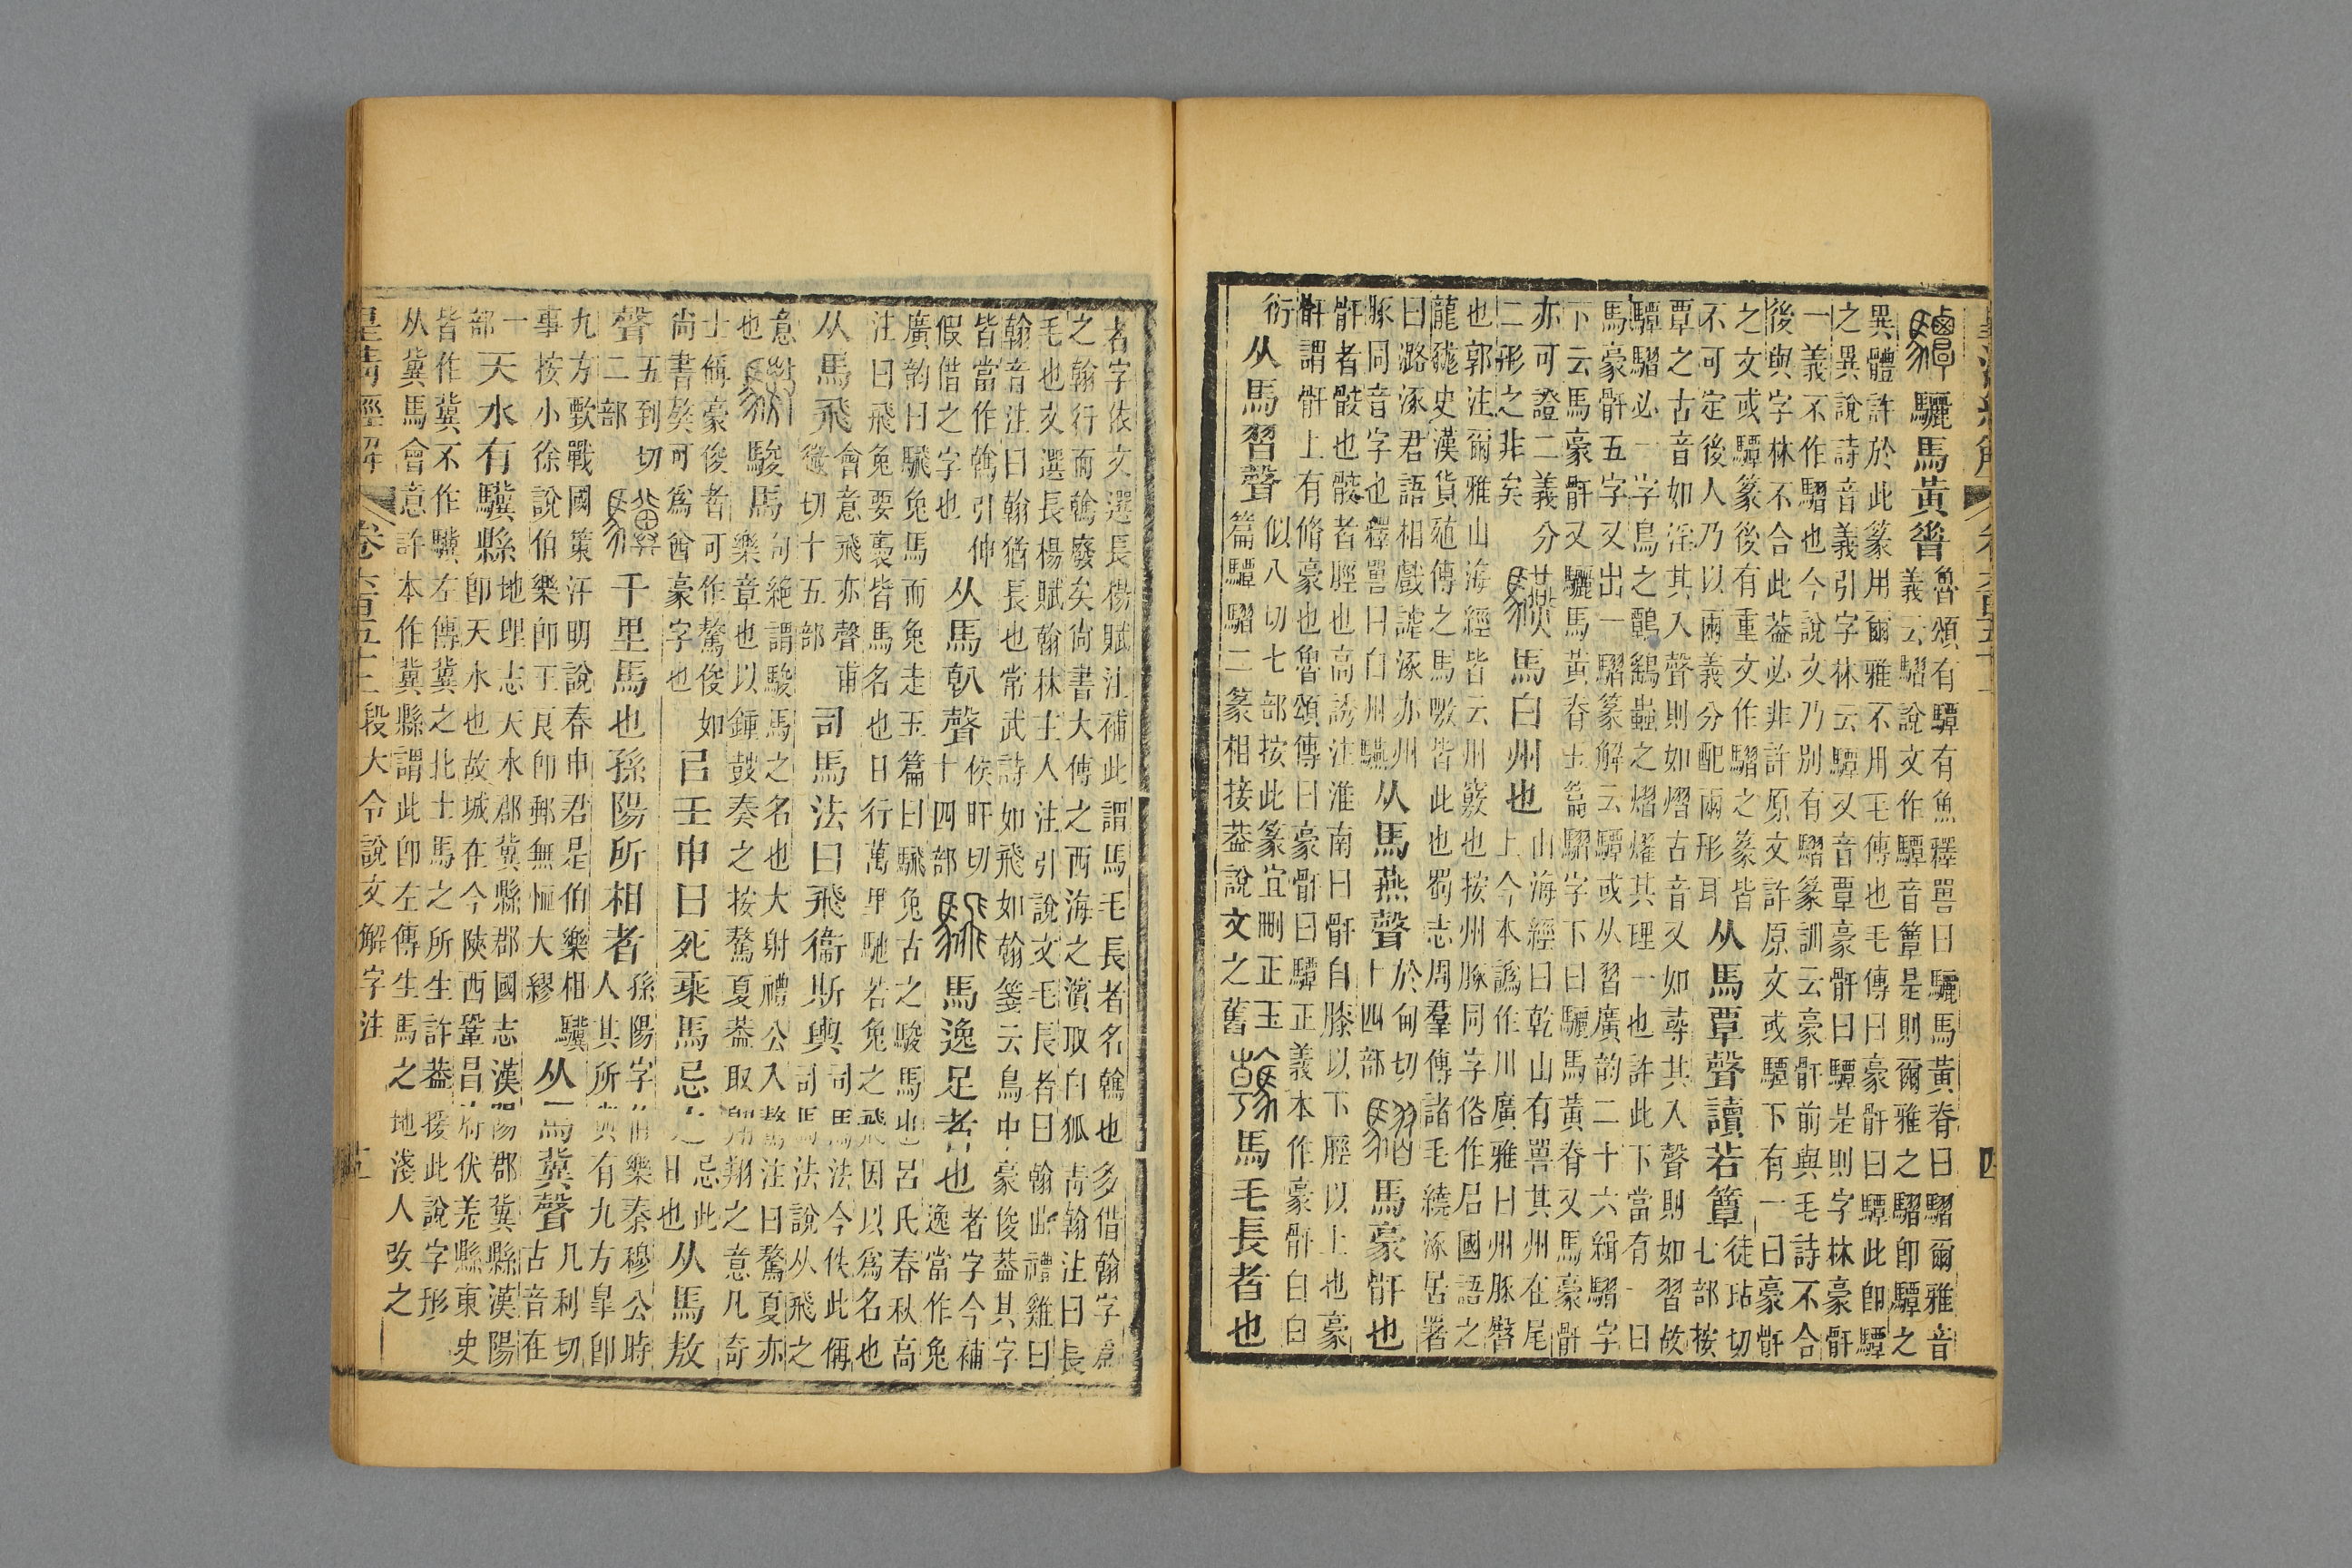 驪馬黃脊
魯頌有驔有魚釋嘼曰驪馬黃脊曰騽爾雅音
義云騽說文作驔音簟是則爾雅之騽卽驔之
異體許於此篆用爾雅不用毛傳也毛傳曰豪骭曰驔此卽驔
之異說詩音義引字林云驔又音覃豪骭曰驔是則字林豪骭
一義不作騽也今說文乃別有騽篆訓云豪骭前與毛詩不合
後與字林不合此葢必非許原文許原文或驔下有一曰豪骭
之文或驔篆後有重文作騽之篆皆
不可定後人乃以兩義分配兩形耳
从馬覃聲讀若簟
徒玷切
七部按
覃之古音如淫其入聲則如熠古音又如蕁其入聲則如習故
驔騽必一字鳥之鷣鷂蟲之熠燿其理一也許此下當有一曰
馬豪骭五字又出一騽篆解云驔或从習廣韵二十六緝騽字
下云馬豪骭又驪馬黃脊玉篇騽字下曰驪馬黃脊又馬豪骭
亦可證二義分
二形之非矣
驠 馬白州也
山海經曰乾山有嘼其州在尾
上今本譌作川廣雅曰州豚臀
也郭注爾雅山海經皆云州竅也按州豚同字俗作𡱂國語之
龍㺜史漢貨殖傳之馬噭皆此也蜀志周羣傳諸毛繞涿居署
曰潞涿君語相戲謔涿亦州
豚同音字也釋嘼曰白州驠
从馬燕聲
於甸切
十四部
騽 馬豪骭也
骭者骸也骸者脛也高誘注淮南曰骭自膝以下脛以上也豪
骭謂骭上有脩豪也魯頌傳曰豪骭曰驔正義本作豪骭白白
衍
从馬習聲
似入切七部按此篆宜刪正玉
篇驔騽二篆相接葢說文之舊
馬毛長者也
者字依文選長楊賦注補此謂馬毛長者名䮧也多借翰字爲
之翰行而䮧廢矣尙書大傳之西海之濱取白狐靑翰注曰長
毛也文選長楊賦翰林主人注引說文毛長者曰翰曲禮雞曰
翰音注曰翰猶長也常武詩如飛如翰箋云鳥中豪俊葢其字
皆當作䮧引伸
假借之字也
从馬倝聲
矦旰切
十四部
馬逸足者也
者字今補
逸當作兔
廣韵曰騛兔馬而兔走玉篇曰騛兔古之駿馬也呂氏春秋高
注曰飛兔要褭皆馬名也日行萬里馳若兔之飛因以爲名也
从馬飛
會意飛亦聲甫
微切十五部
司馬法曰飛衞斯輿
司馬法今佚此偁
司馬法說从飛之
意
也
駿馬
句絶謂駿馬之名也大射禮公入驁注曰驁夏亦
樂章也以鍾鼓奏之按驁夏葢取翺翔之意凡奇
士偁豪俊者可作驁俊如
尙書獒可爲酋豪字也
㠯壬申日死乘馬忌之
忌此
日也
从馬敖
聲
五到切
二部
驥 千里馬也孫陽所相者
孫陽字伯樂秦穆公時
人其所與有九方臯卽
九方歅戰國策汗明說春申君是伯樂相驥
事按小徐說伯樂卽王良卽郵無恤大繆
从馬冀聲
几利切
古音在
一
部
天水有驥縣
地理志天水郡冀縣郡國志漢陽郡冀縣漢陽
卽天水也故城在今陝西鞏昌府伏羌縣東史
皆作冀不作驥左傳冀之北土馬之所生許葢援此說字形
从冀馬會意許本作冀縣謂此卽左傳生馬之地淺人改之
皇淸經解 卷六百五十 段大令說文解字注